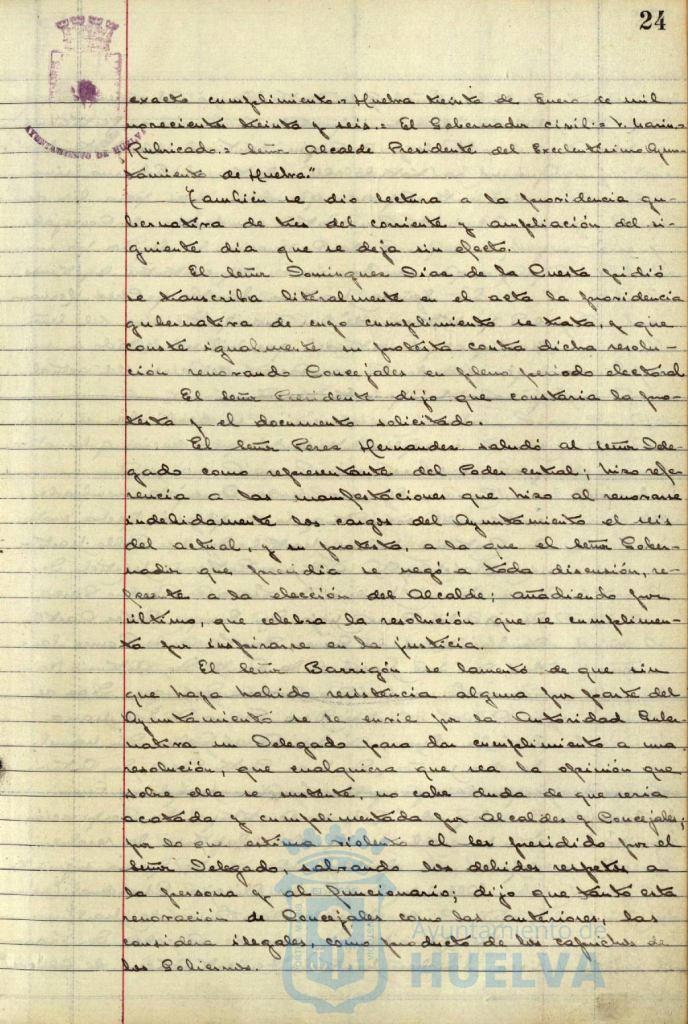 24
AYUNTAMIENTO DE HUELVA
exacto cumplimiento.= Huelva treinta de Enero de mil
novecientos treinta y seis.= El Gobernador civil.= V. Marin.=
Rubricado.= Señor Alcalde Presidente del Excelentísimo Ayun-
tamiento de Huelva."
También se dio lectura a la providencia gu-
bernativa de tres del corriente y ampliación del si-
guiente dia que se deja sin efecto.
El Señor Dominguez Diaz de la Cuesta pidió
se transcriba literalmente en el acta la providencia
gubernativa de cuyo cumplimiento se trata, y que
conste igualmente su protesta contra dicha resolu-
ción renovando Concejales en pleno periodo electoral
El Señor Presidente dijo que constaria la pro-
testa y el documento solicitado.
El Señor Perez Hernandez saludó al Señor Dele-
gado como representante del Poder central; hizo refe-
rencia a las manifestaciones que hizo al renovarse
indebidamente los cargos del Ayuntamiento el seis
del actual, y su protesta, a la que el Señor Gober-
nador que presidia se negó a toda discusión, re-
ferente a la elección del Alcalde; añadiendo por
último, que celebra la resolución que se cumplimen-
ta por inspirarse en la justicia.
El Señor Barrigón se lamentó de que sin
que haya habido resistencia alguna por parte del
Ayuntamiento se le envie por la Autoridad Guber-
nativa un Delegado para dar cumplimiento a una
resolución, que cualquiera que sea la opinión que
sobre ella se sustente, no cabe duda de que seria
acatada y cumplimentada por Alcaldes y Concejales;
por lo que estima violento el ser presidido por el
Señor Delegado, salvando los debidos respetos a
la persona y al funcionario; dijo que tanto esta
renovación de Concejales como las anteriores, las
considera ilegales, como producto de los caprichos de
los Gobiernos.
Ayuntamiento de
HUELVA